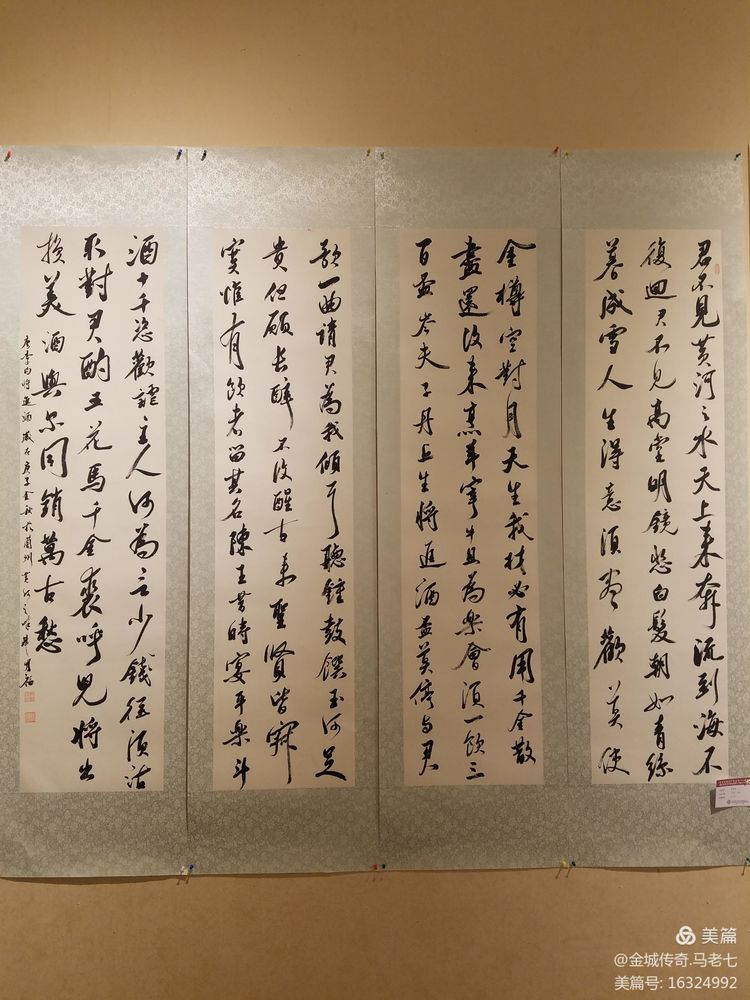 君不見黄河之水天上来奔流到海不
復迴君不見高堂明鏡悲白髮朝如青絲
暮成雪人生得意須盡歡莫使
金樽空對月天生我材必有用千金散
盡還復来烹羊宰牛且為樂會須一飲三
百盃岑夫子丹丘生將進酒盃莫停与君
歌一曲請君為我傾耳聽鍾鼓饌玉何足
貴但願長醉不復醒古来聖賢皆寂
寞惟有飲者留其名陳王昔時宴平樂斗
酒十千恣歡謔主人何為言少錢徑須沽
取對君酌五花馬千金裘呼兒將出
換美酒與尔同銷萬古愁
唐李白將進酒歲在庚子金秋於蘭州黄河之畔
美篇
@金城传奇.马老七
美篇号: 16324992